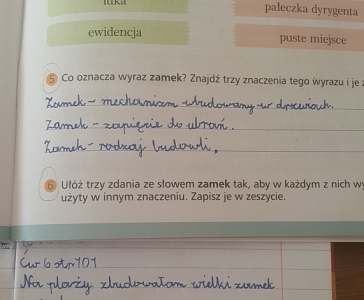 luka
pałeczka dyrygenta
ewidencja
puste miejsce
5 Co oznacza wyraz zamek? Znajdź trzy znaczenia tego wyrazu i je z
Zamek – mechanizm wbudowany w drzwiach.
Zamek – zapięcie do ubrań.
Zamek – rodzaj budowli.
6 Ułóż trzy zdania ze słowem zamek tak, aby w każdym z nich wy
użyty w innym znaczeniu. Zapisz je w zeszycie.
Ćw 6 str 101
Na plaży zbudowałam wielki zamek